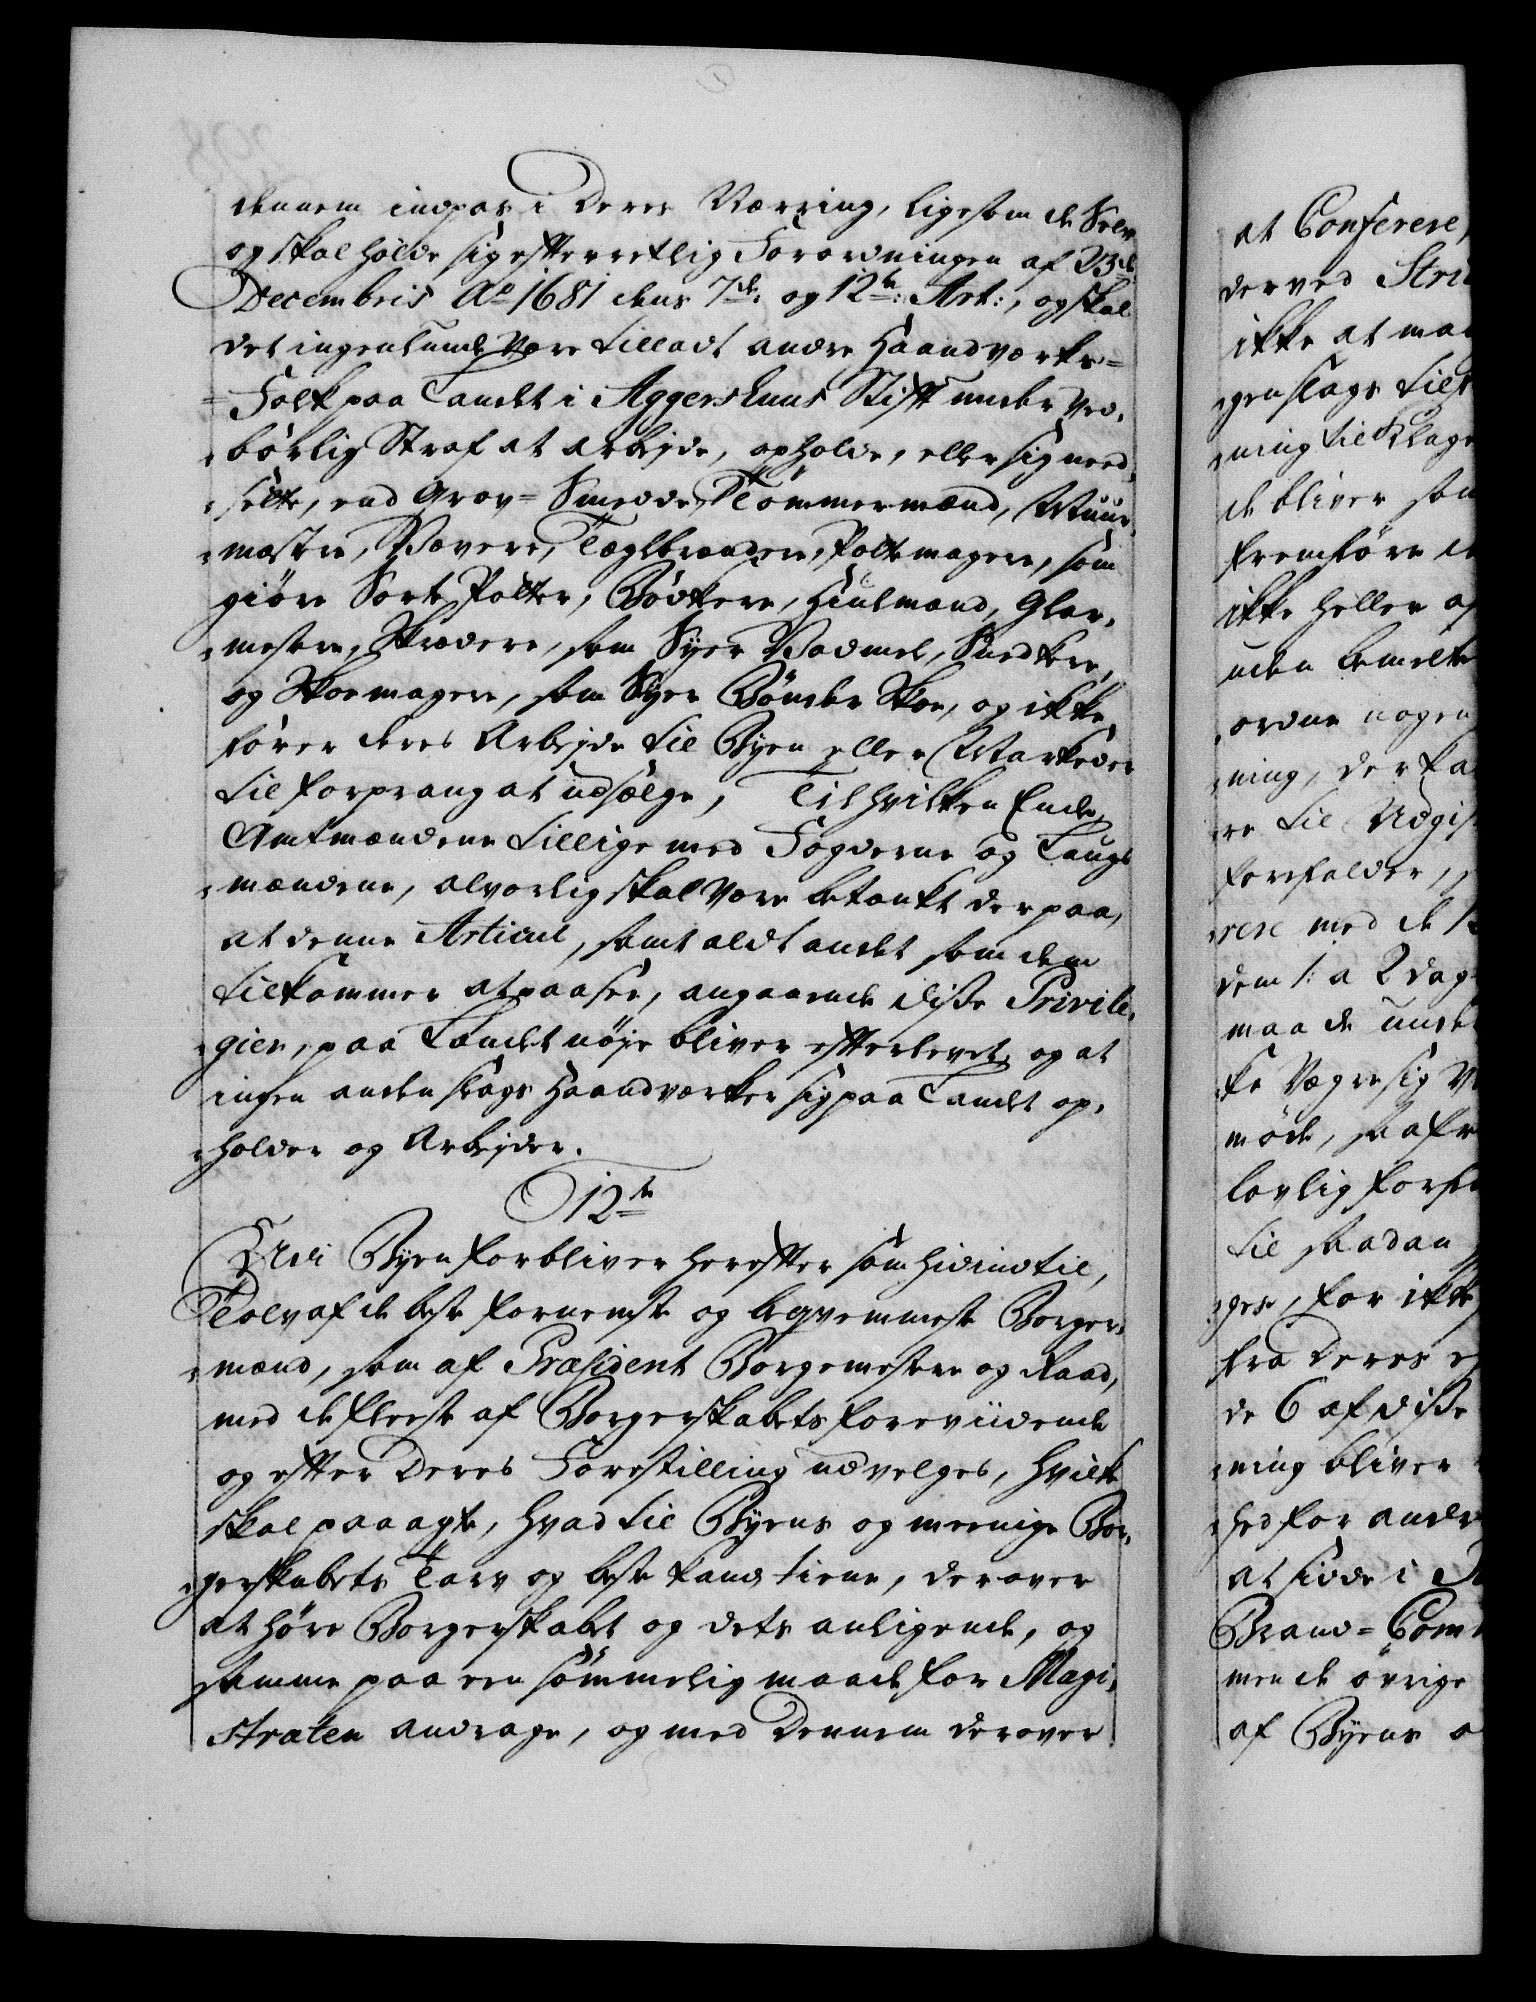 dennem indpas i Deres Næring, ligesom de Selv
og skal holde sig efterretlig Forordningen af 23de
Decembris Ao 1681 dens 7de og 12te: Art:, og skal
det ingenlunde være tilladt andre Haandværks=
=Folk paa Landet i Aggershuus Stift under ved,
børlig Straf at arbejde, opholde, eller sig need,
sette, end Grov= Smedde, Tömmermænd, Muur,
mæstre, Vævere, Teglbrændere, Pottemagere, som
giøre Sorte Potter, Bødkere, Hiulmænd, Glar,
mestere, Skrædere, som Syer Vadmel, Snedkere,
og Skoemagere, som Syer Bønder Skoe, og ikke
fører deres Arbejde til Byen eller Markeder
til forprang at udsælge, Til hvilken Ende
Amtmændene tillige med Fogderne og Laugs
mændene, alvorlig skal være betænkt derpaa,
at denne Articul, samt aldt andet som dem
tilkommer at paasee, angaaende disse Privile,
gier, paa Landet nøje bliver efterlevet, og at
ingen anden slags Haandværker sig paa Landet op,
holder og Arbejder.
12te
Udi Byen forbliver herefter som hidindtil,
Tolv af de beste fornemste og beqvemmeste Borger,
mænd, som af Præsident Borgemestere og Raad,
med de fleeste af Borgerskabets foreviidende
og efter Deres Forestilling udvelges, hvilke
skal paaagte, hvad til Byens og meenige Bor,
gerskabets Tarv og beste kand tiene, derover
at høre Borgerskabet og dets anligende, og
samme paa een sømmelig maade for Magi,
straten andrage, og med Dennem derover
at Conferere,
derved
ikke at
ning til Klage
de bliver
fremføre
ikke heller
uden bemelte
ordne nogen
ning, der
re til
forefalder,
rere med de
dem 1: a 2 dag
maa de
ke Vægre sig
møde,
lovlig
til saadan
for ikke
fra Deres
de 6 af disse
ning bliver
hed for andre
at sidde i
Brand=
men de øvrige
af Byens